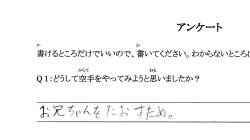 アンケート
書けるところだけでいいので、書いてください。わからないところに
Q1:どうして空手をやってみようと思いましたか?
お兄ちゃんをたおすため。